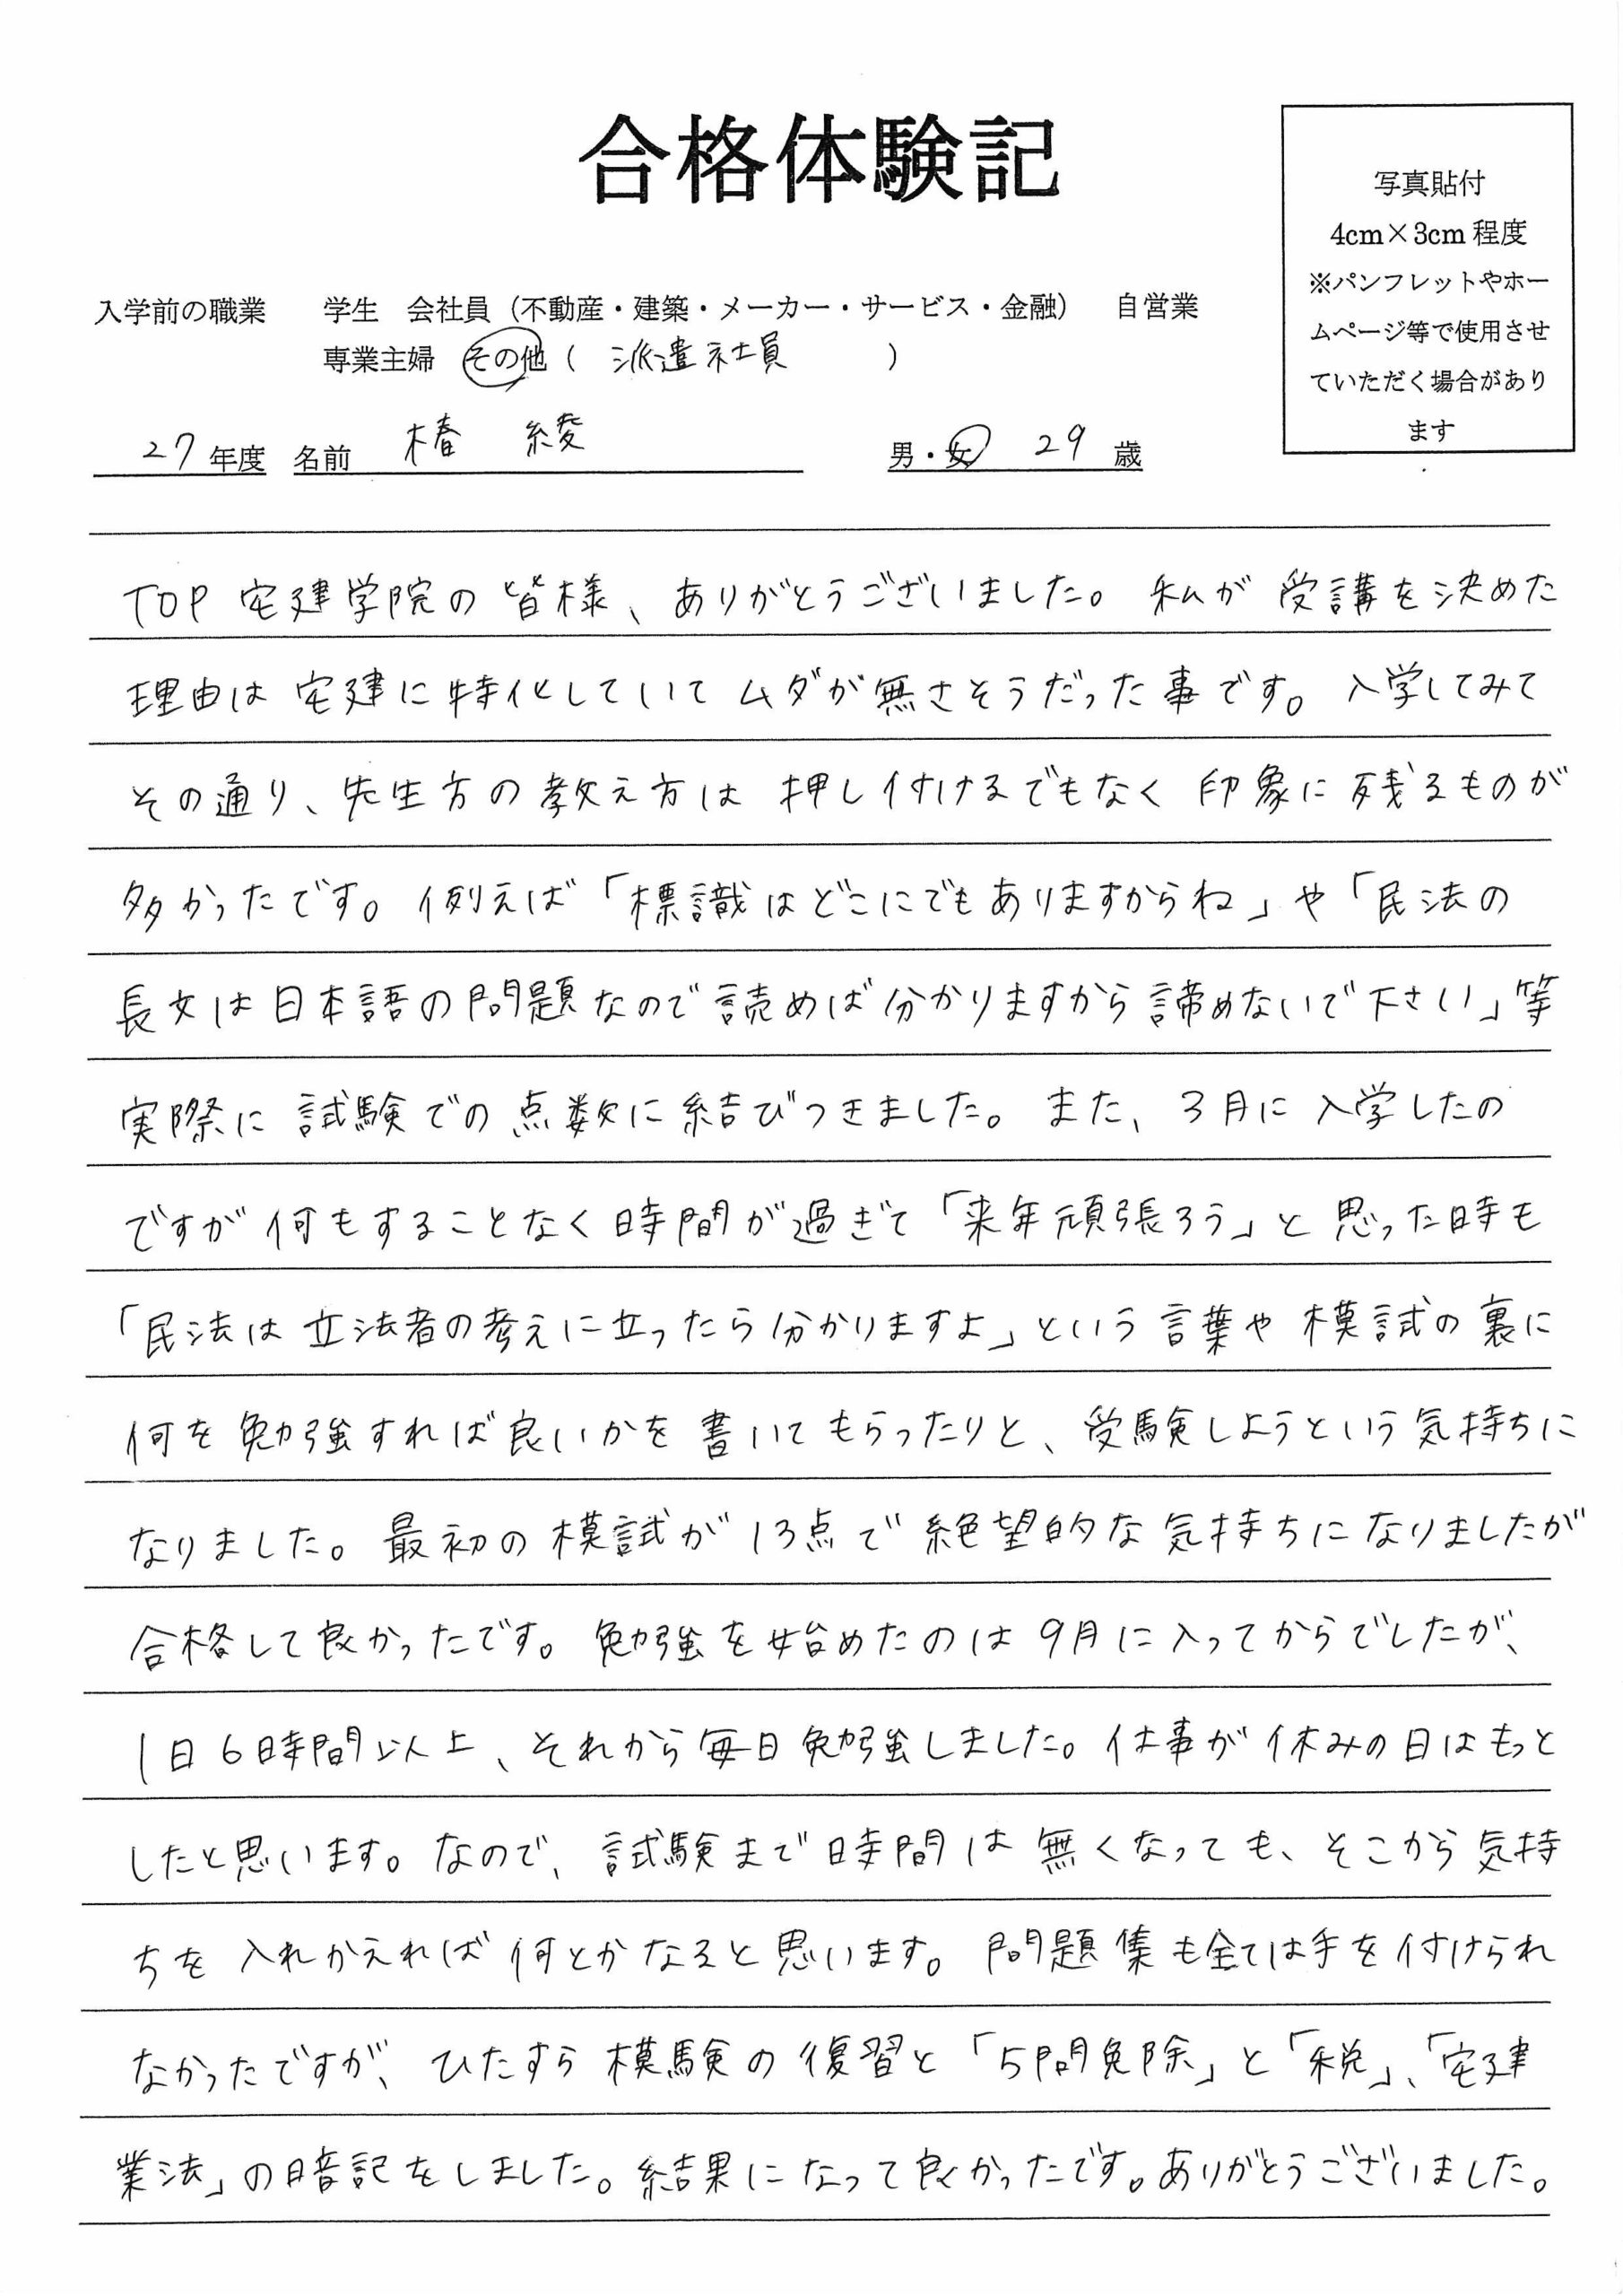 合格体験記
写真貼付
4cm×3cm 程度
※パンフレットやホー
ムページ等で使用させ
ていただく場合があり
ます
入学前の職業 学生 会社員（不動産・建築・メーカー・サービス・金融） 自営業
専業主婦 その他（ 派遣社員 ）
27 年度 名前 椿 綾 男・女 29 歳
TOP 宅建学院の皆様、ありがとうございました。私が受講を決めた
理由は宅建に特化していてムダが無さそうだった事です。入学してみて
その通り、先生方の教え方は押し付けるでもなく印象に残るものが
多かったです。例えば「標識はどこにでもありますからね」や「民法の
長文は日本語の問題なので読めば分かりますから諦めないで下さい」等
実際に試験での点数に結びつきました。また、3月に入学したの
ですが何もすることなく時間が過ぎて「来年頑張ろう」と思った時も
「民法は立法者の考えに立ったら分かりますよ」という言葉や模試の裏に
何を勉強すれば良いかを書いてもらったりと、受験しようという気持ちに
なりました。最初の模試が13点で絶望的な気持ちになりましたが
合格して良かったです。勉強を始めたのは9月に入ってからでしたが、
1日6時間以上、それから毎日勉強しました。仕事が休みの日はもっと
したと思います。なので、試験まで時間は無くなっても、そこから気持
ちを入れかえれば何とかなると思います。問題集も全ては手を付けられ
なかったですが、ひたすら模験の復習と「5問免除」と「税」、「宅建
業法」の暗記をしました。結果になって良かったです。ありがとうございました。